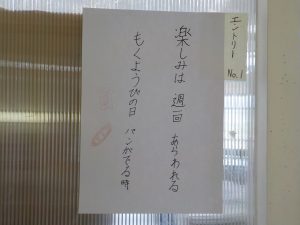 エントリー
No.1
楽しみは 週一回 あらわれる
もくようびの日 パンがでる時